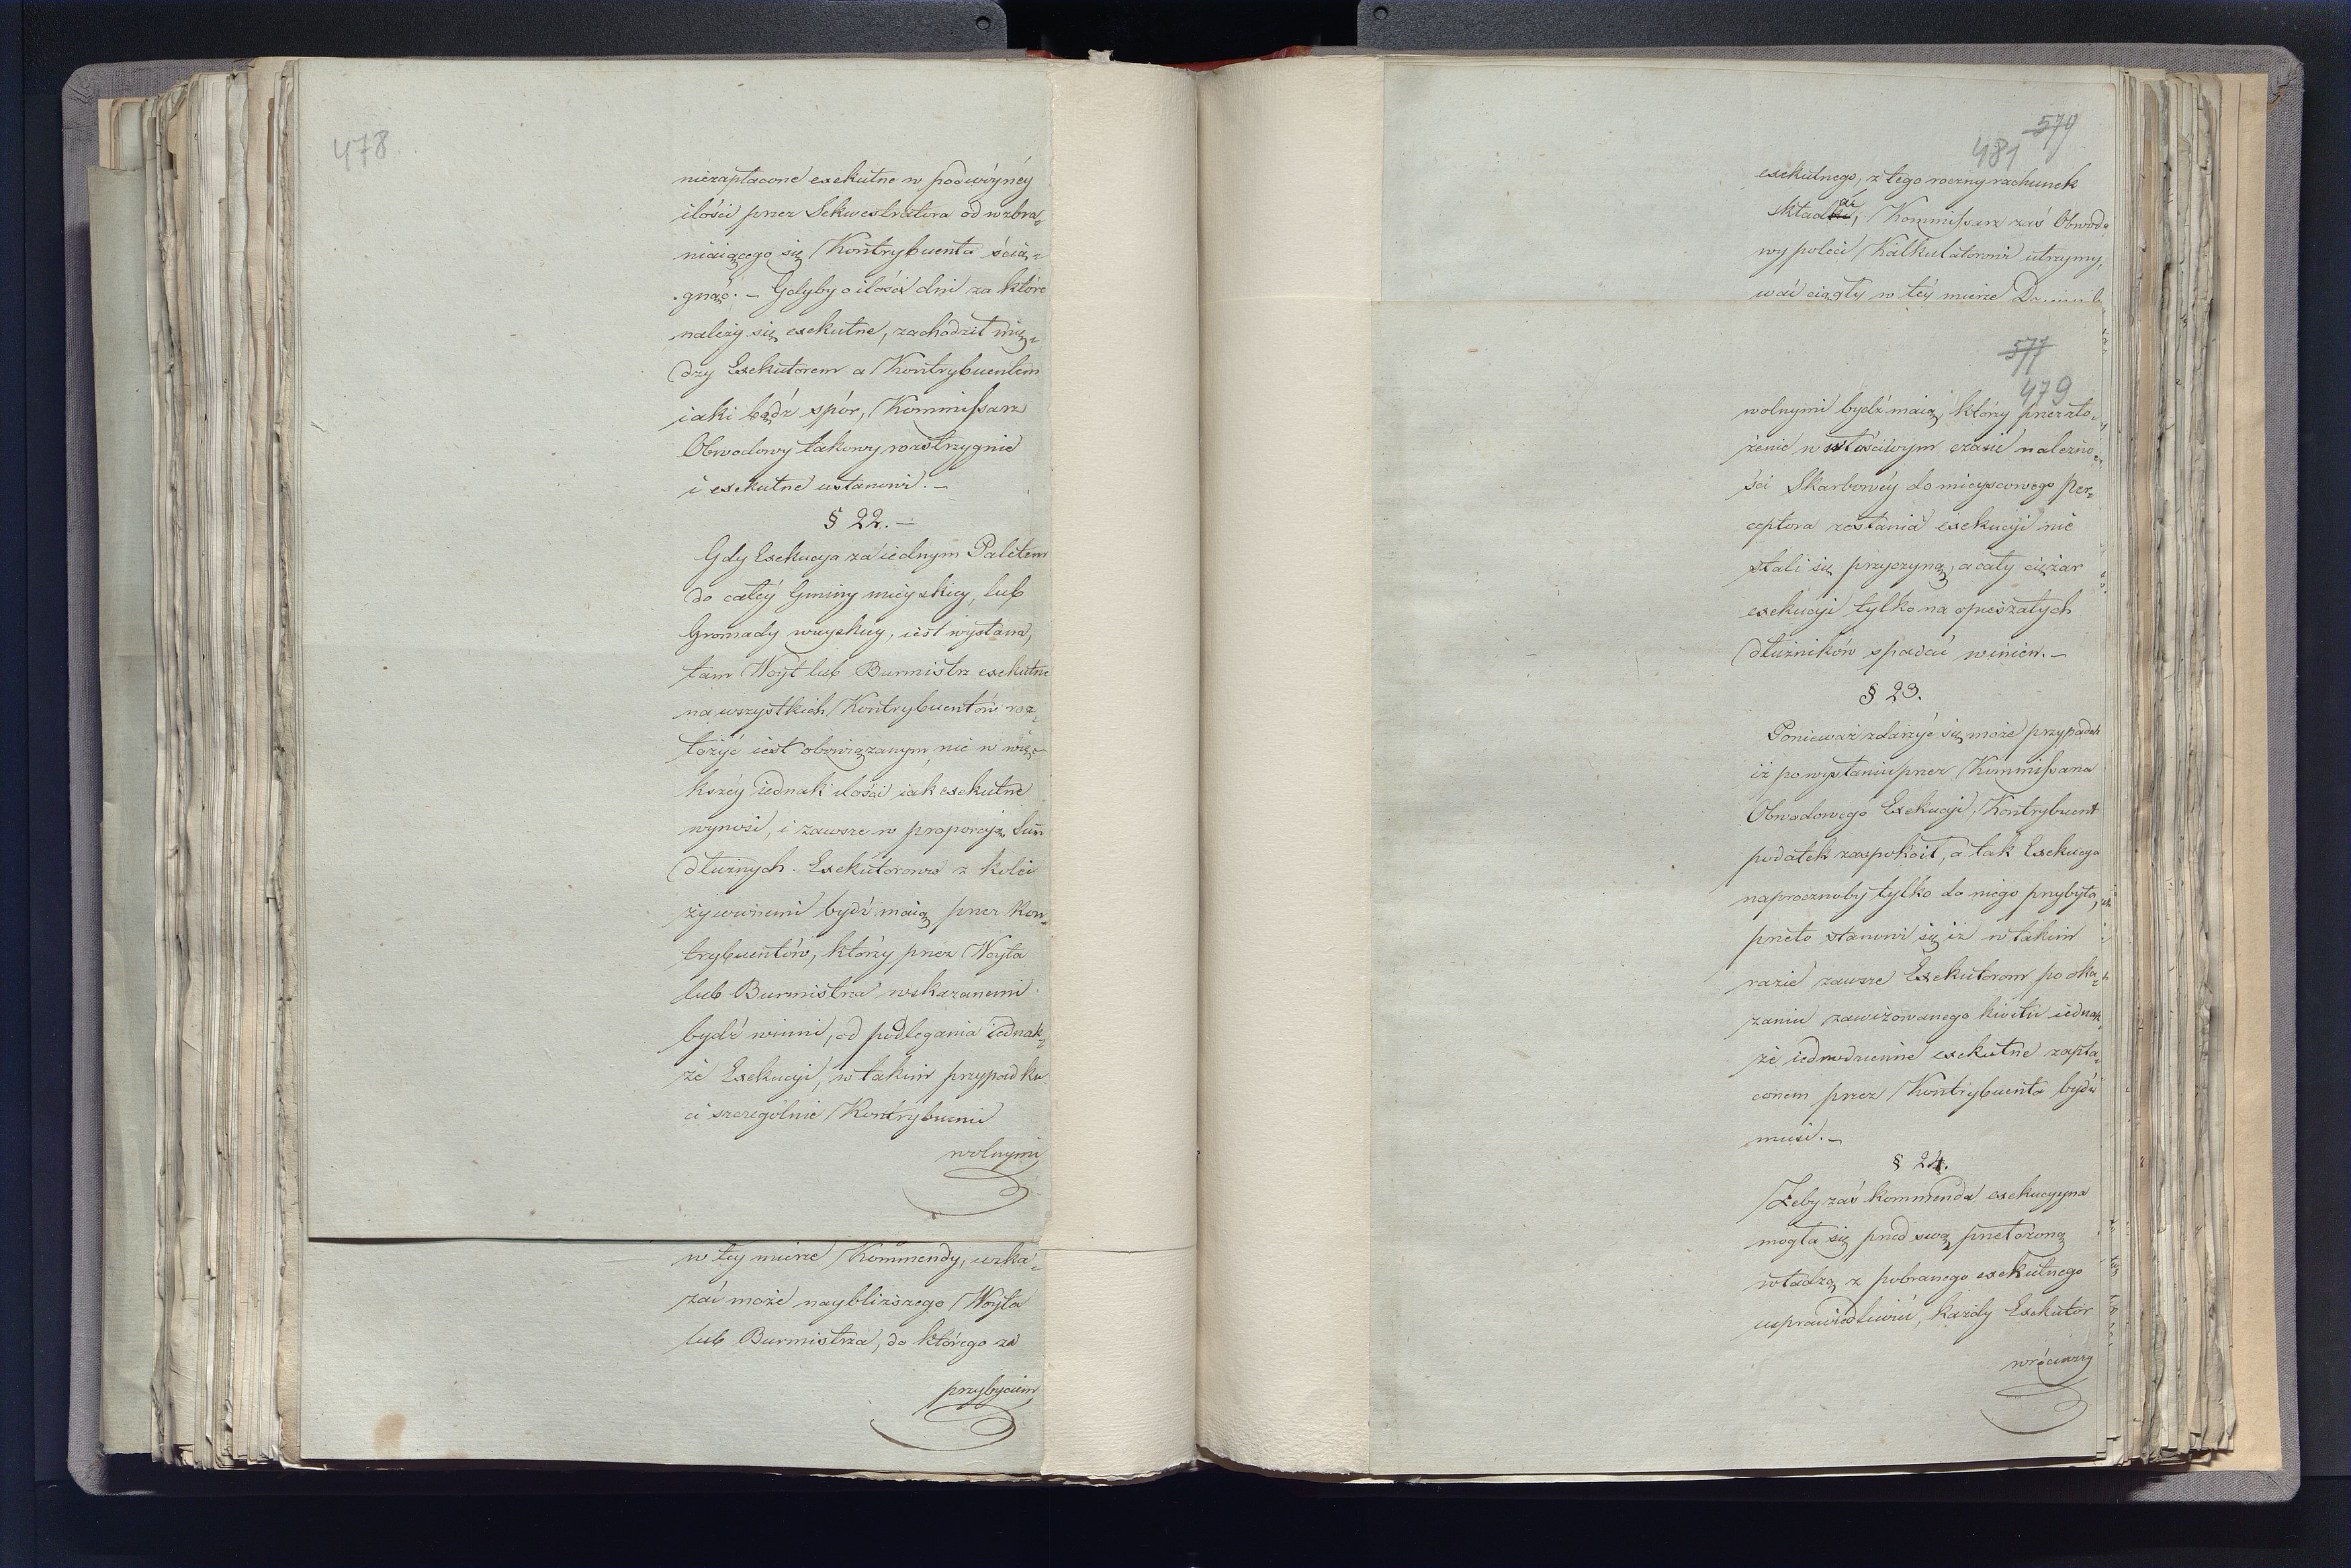 478
niezapłacone exekutne w podwóynéy
ilości przez Sekwestratora od wzbra-
niaiącego się Kontrybuenta ścią-
gnąć. – Gdyby o ilość dni za które
należy się exekutne, zachodził mię-
dzy Exekutorem a Kontrybuentem
iaki bądź spór, Kommissarz
Obwodowy takowy rozstrzygnie
i exekutne ustanowi. –
§ 22. –
Gdy Exekucya za iednym Paletem
do całéy Gminy mieyskiey, lub
Gromady wieyskiey, iest wysłana,
tam Woyt lub Burmistrz exekutne
na wszystkich Kontrybuentów roz-
łożyć iest obowiązanym, nie w wię-
kszéy iednak ilości iak exekutne
wynosi, i zawsze w proporcyą Sum̄
dłużnych. Exekutorowie z kolei
żywionemi bydź maią przez Kon-
trybuentów, którzy przez Woyta
lub Burmistrza wskazanemi
bydź winni, od podlegania iednak-
że Exekucyi, w takim przypadku
ci szczególnie Kontrybuenci
wolnymi
w tey mierze Kommendy, wska-
zać może naybliższego Woyta
lub Burmistrza, do którego za
przybyciem
579
481
exekutnego, z tego roczny rachunek
składać, Kommissarz zaś Obwodo
wy poleci Kalkulatorowi utrzymy-
wać ciągły w téy mierze
577
479
wolnymi bydź maią, którzy przez zło-
żenie w właściwym czasie należno-
ści Skarbowéy do mieyscowego Per-
ceptora zesłania exekucyi nie
stali się przyczyną, a cały ciężar
exekucyi tylko na opieszałych
dłużników spadać winien. –
§ 23.
Ponieważ zdarzyć się może przypadek
iż po wysłaniu przez Kommissarza
Obwodowego Exekucyi, Kontrybuent
podatek zaspokoił, a tak Exekucya
naproznoby tylko do niego przybyła,
przeto stanowi się iż w takim
razie zawsze Exekutorom po oka-
zaniu zawizowanego kwitu iednak-
że iednodzienne exekutne zapła-
conem przez Kontrybuenta bydź
musi. –
§ 24.
Żeby zaś kommenda exekucyyna
mogła się przed swą przełożoną
władzą z pobranego exekutnego
usprawiedliwić, każdy Exekutor
wróciwszy